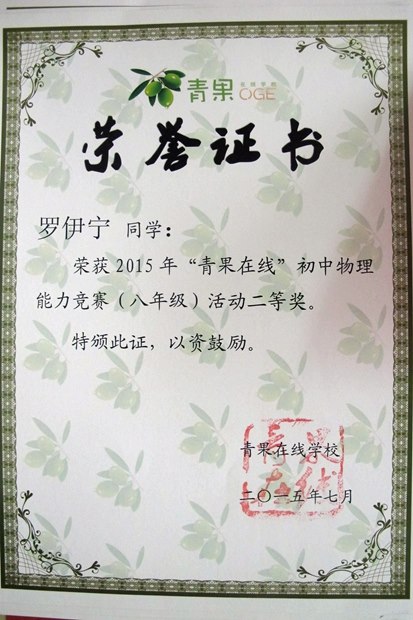 青果 在线学校
OGE
荣誉证书
罗伊宁 同学：
荣获2015年“青果在线”初中物理
能力竞赛（八年级）活动二等奖。
特颁此证，以资鼓励。
青果在线学校
二〇一五年七月
青果
在线